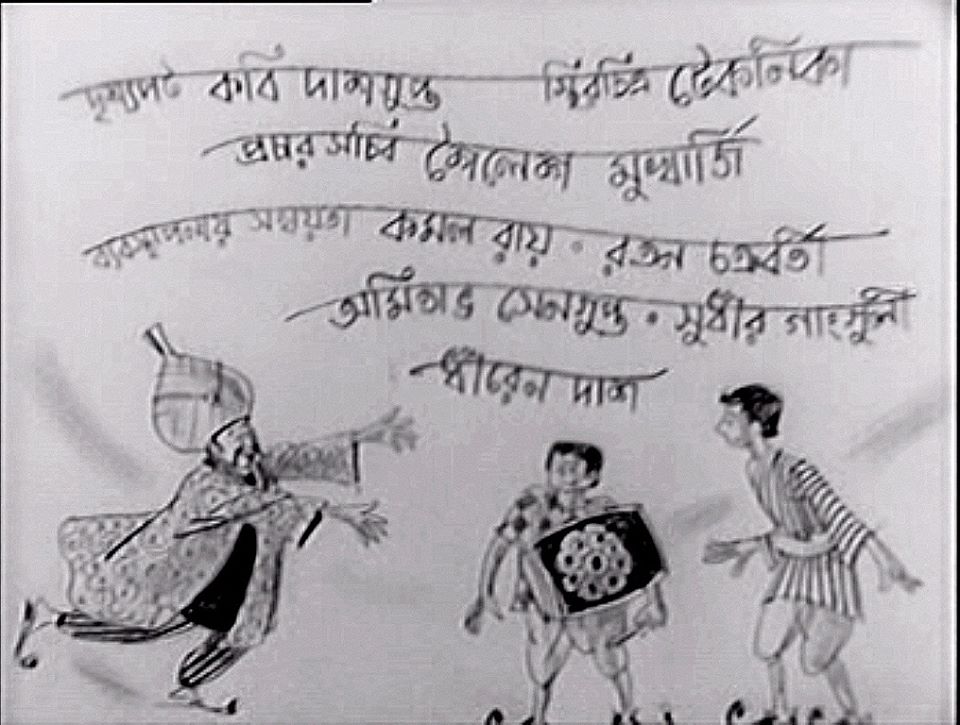 দৃশ্যপট কবি দাশগুপ্ত স্থিরচিত্র টেকনিকা
প্রচার সচিব শৈলেশ মুখার্জি
ব্যবস্থাপনায় সহায়তা কমল রায় · রতন চক্রবর্তী
অমিতাভ সেনগুপ্ত · সুধীর গাংগুলী
ধীরেন দাশ